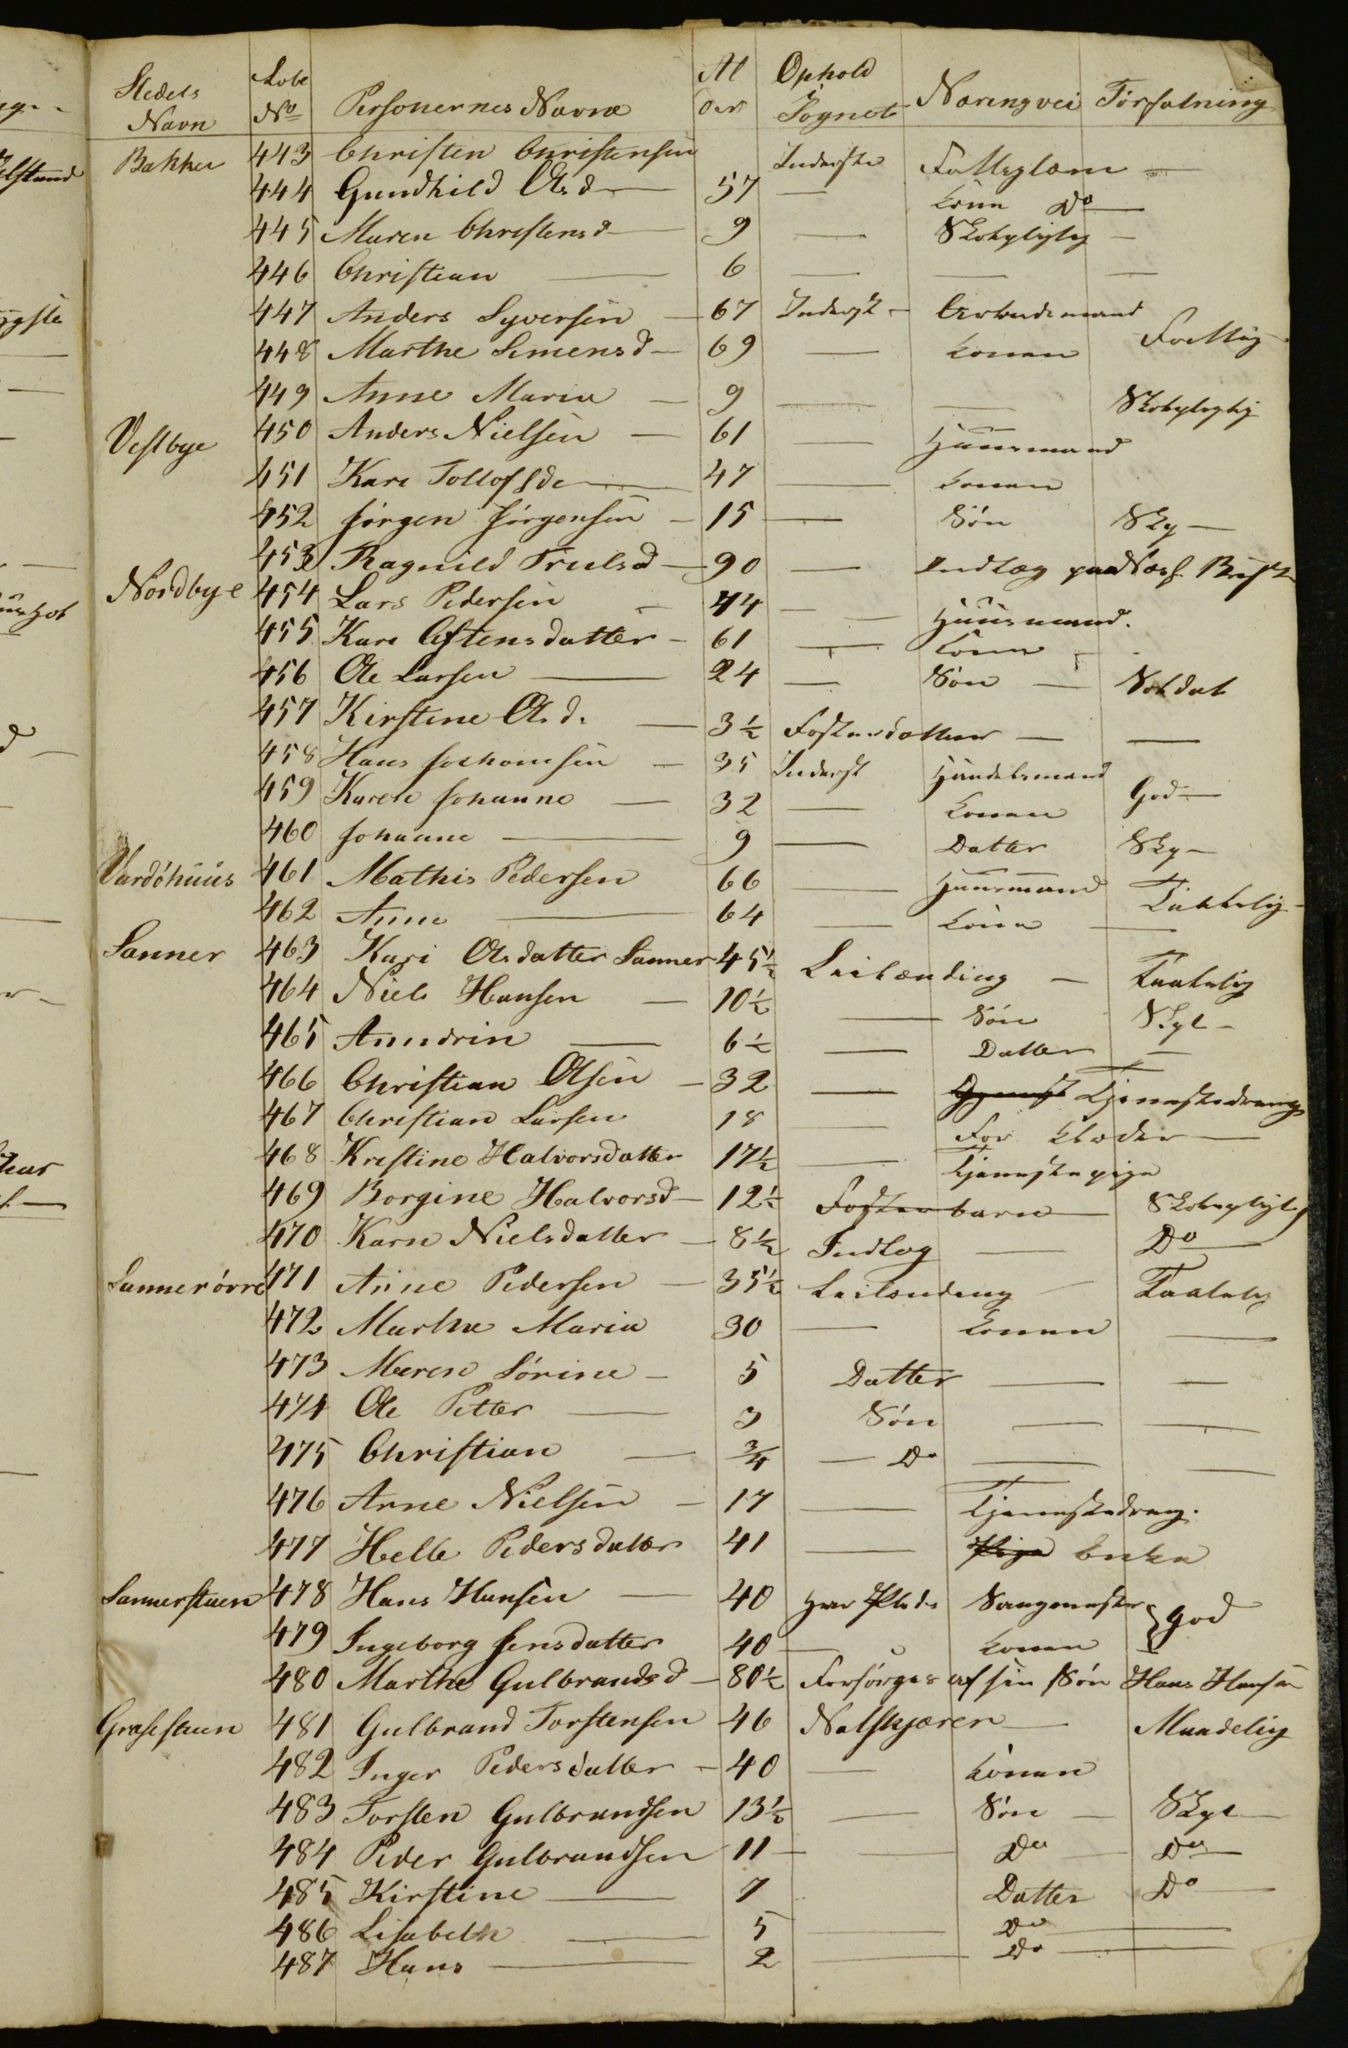 Stedets Navn Løbe No Personernes Navne Alder Ophold i Sognet Næringvei Forfatning
Bakker 443 Christen Christensen Inderste Fattiglem —
444 Gundhild Ols d — 57 — Kone Do —
445 Maren Christensd — 9 — Skolepligtig —
446 Christian — 6 — — —
447 Anders Syversen — 67 Inderst — Arbeidsmand
448 Marthe Simensd — 69 — Konen Fattig —
449 Anne Maria — 9 — — Skolepligtig
Vestbye 450 Anders Nielsen — 61 — Huusmand
451 Kari Tollofsd — 47 — Konen
452 Jørgen Jørgensen — 15 — Søn Sky —
453 Ragnild Trulsd — 90 — Indlæg paa
Nordbye 454 Lars Pedersen — 44 — Huusmand.
455 Kari Estensdatter — 61 — Kone —
456 Ole Larsen — 24 — Søn — Soldat
457 Kirstine Ols d. — 3½ Fosterdatter — —
458 Hans Jochomsen — 35 Inderst Handelsmand
459 Karen Johanne — 32 — Konen God —
460 Johanne — 9 — Datter Sky —
Vardöhuus 461 Mathis Pedersen 66 — Huusmand Taalelig —
462 Anne — 64 — Kone —
Sanner 463 Kari Olsdatter Sanner 45½ Leilænding — Taalelig
464 Niels Hansen — 10½ — Søn Skpl —
465 Anndrin — 6½ — Datter —
466 Christian Olsen — 32 — Tjenestedreng
467 Christian Larsen 18 — For Klæder —
468 Kristine Halvorsdatter 17½ — Tjenestepige
469 Borgine Halvorsd — 12½ Fosterbarn — Skolepligt
470 Karn Nielsdatter — 8½ Indlæg — Do —
Sanner övre 471 Arne Pedersen — 35½ Leilænding — Taalelig
472 Marthe Maria 30 — Konen —
473 Maren Sørine — 5 Datter — —
474 Ole Petter — 3 Søn — —
475 Christian — ¾ — Do — —
476 Arne Nielsen — 17 — Tjenestedreng.
477 Helle Pedersdatter 41 — Pige Enke
Sannerstuen 478 Hans Hansen — 40 Saugmester } God
479 Ingeborg Jensdatter 40 — Konen
480 Marthe Gulbrandsd — 80½ Forsørges af sin Søn Hans Hansen
Gresestuen 481 Gulbrand Torstensen 46 Natskjærer — Maadelig
482 Inger Pedersdatter — 40 — Konen
483 Torsten Gulbrandsen 13½ — Søn — Skpl —
484 Peder Gulbrandsen 11 — — Do — Do —
485 Kirstine — 7 Datter Do —
486 Lisabeth — 5 — Do —
487 Hans — 2 — Do —